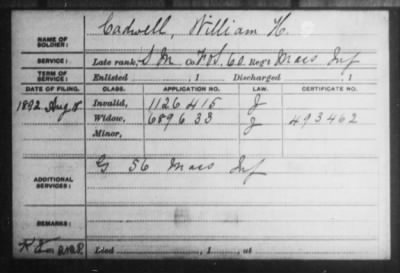 NAME OF SOLDIER: Cadwell, William H.
SERVICE: Late rank, S M Co. F & S, 60 Reg't Mass Inf
TERM OF SERVICE: Enlisted , 1 Discharged , 1
DATE OF FILING. CLASS. APPLICATION NO. LAW. CERTIFICATE NO.
1892 Aug 8 Invalid, 1126415 J
Widow, 689633 J 493462
Minor,
ADDITIONAL SERVICES: G 56 Mass Inf
REMARKS:
Died , 1 , at